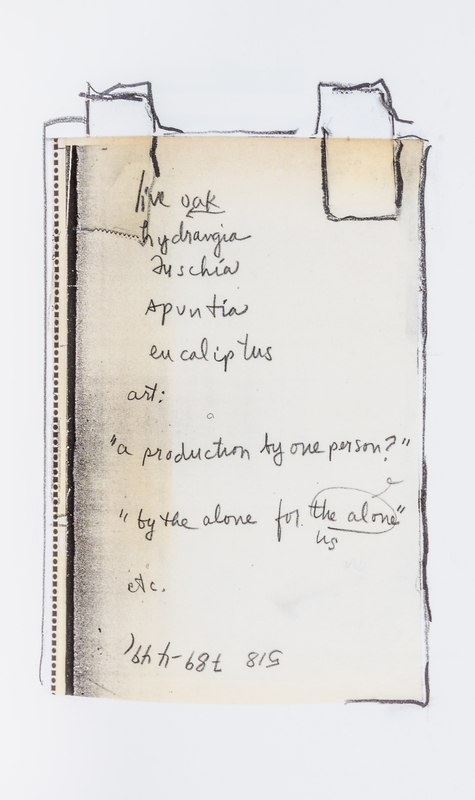 live oak
hydrangia
fuschia
apuntia
eucaliptus
art:
"a production by one person?"
"by the alone for the alone"
us
etc.
518 789-4491